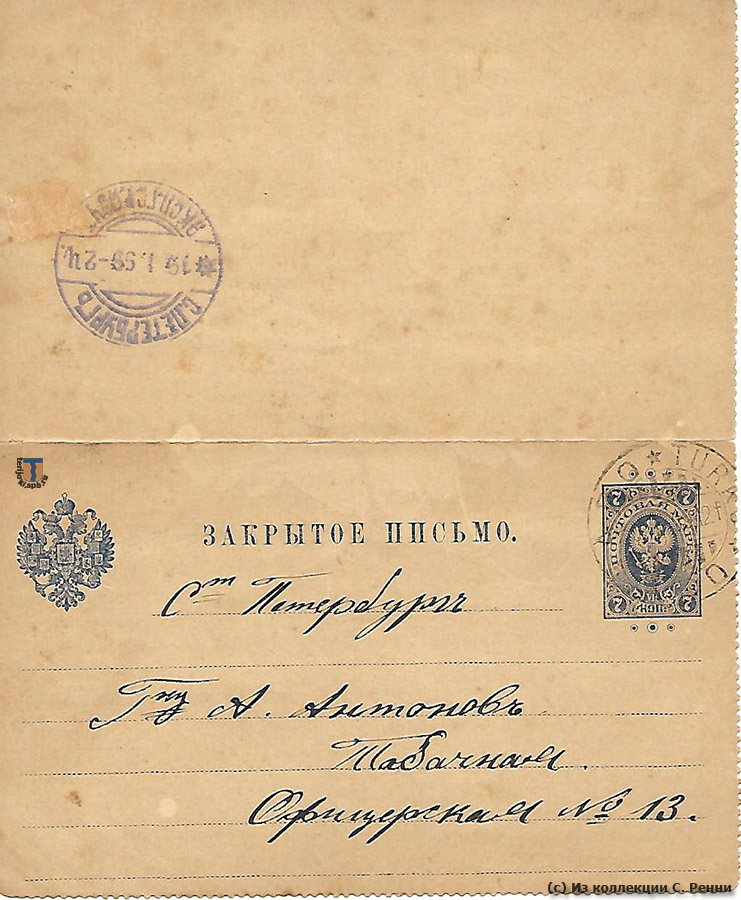 С.ПЕТЕРБУРГЪ
19 I.99-2Ч.
ЭКСПЕДИЦ.
terijoki.spb.ru
TURK
ЗАКРЫТОЕ ПИСЬМО.
ПОЧТОВАЯ МАРКА
7 7
7 КОП. 7
Ст Петербургъ
Гну А. Антоновъ
Табачная.
Офицерская № 13.
(c) Из коллекции С. Ренни